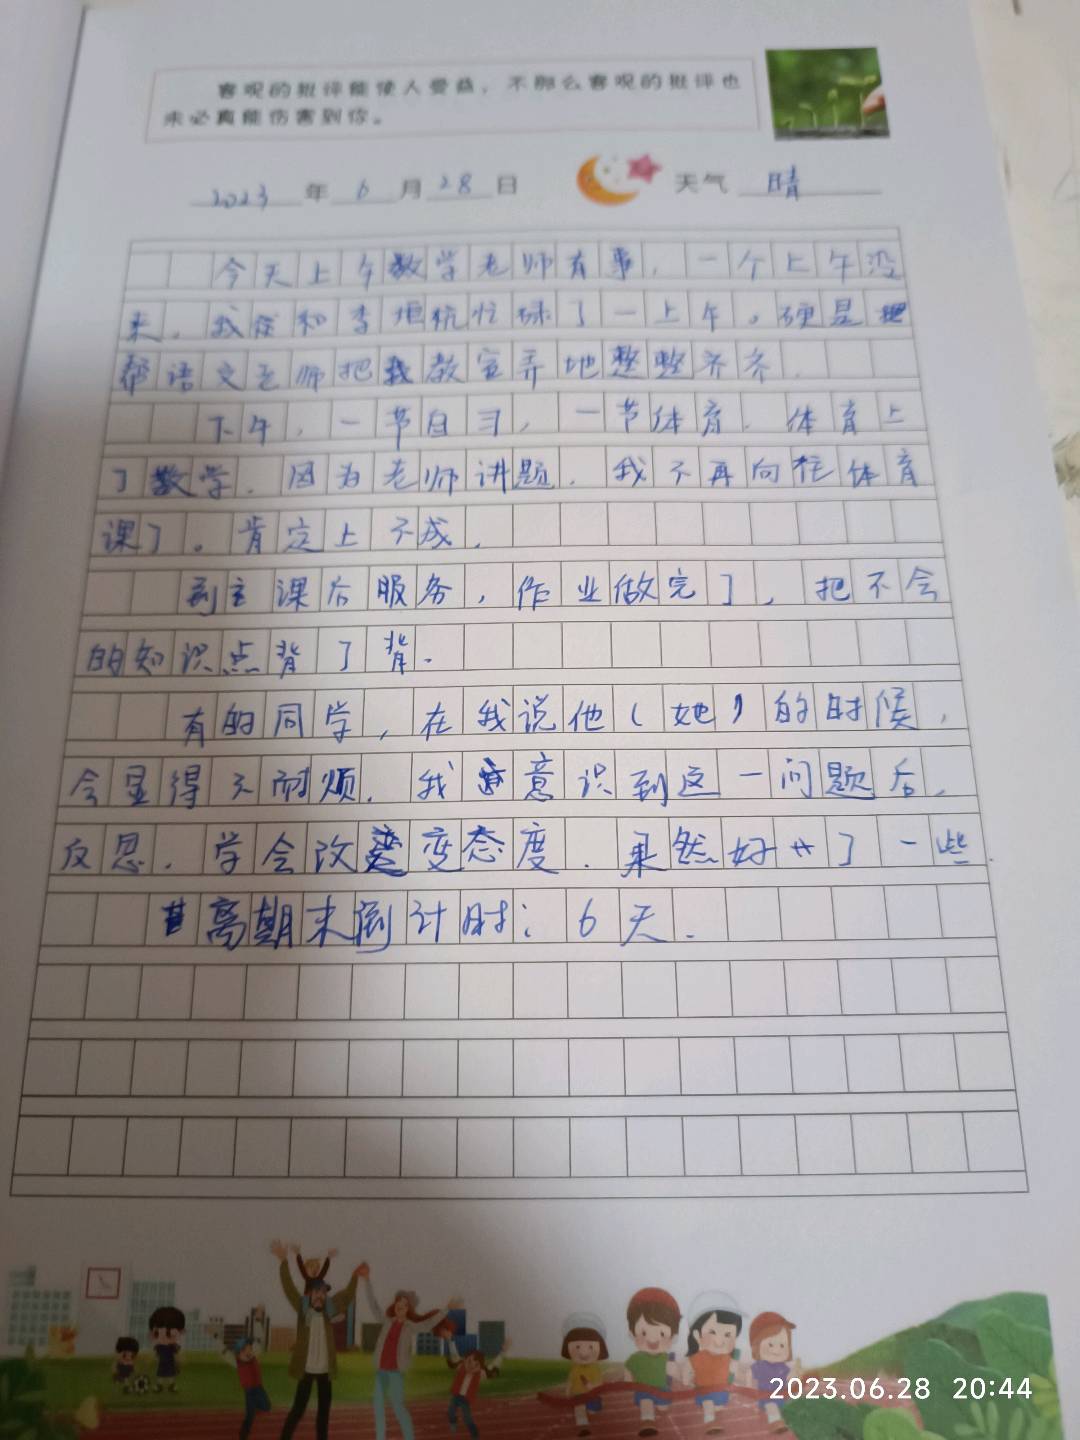 客观的批评能使人受益，不那么客观的批评也
未必真能伤害到你。
2023 年 6 月 28 日 天气 晴
今天上午数学老师有事，一个上午没
来。我和李恒杭忙碌了一上午。硬是
帮语文老师把教室弄地整整齐齐.
下午，一节自习，一节体育.体育上
了数学.因为老师讲题.我不再向往体育
课了。肯定上不成.
到主课后服务，作业做完了，把不会
的知识点背了背.
有的同学，在我说他(她)的时候，
会显得不耐烦.我意识到这一问题后，
反思.学会改变态度.果然好了一些.
离期末倒计时：6天.
2023.06.28 20:44